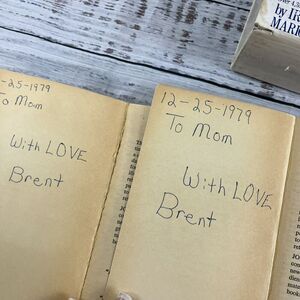 12-25-1979
To Mom
With LOVE
Brent
12-25-1979
To Mom
With LOVE
Brent
MARK